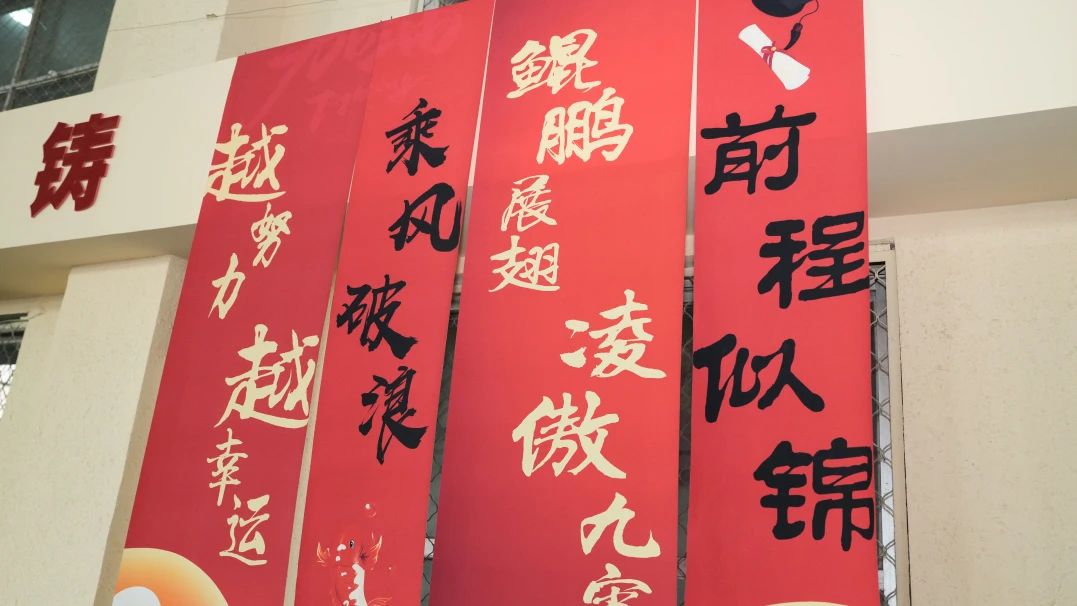 铸
越努力越幸运
乘风破浪
鲲鹏展翅
凌傲九
前程似锦